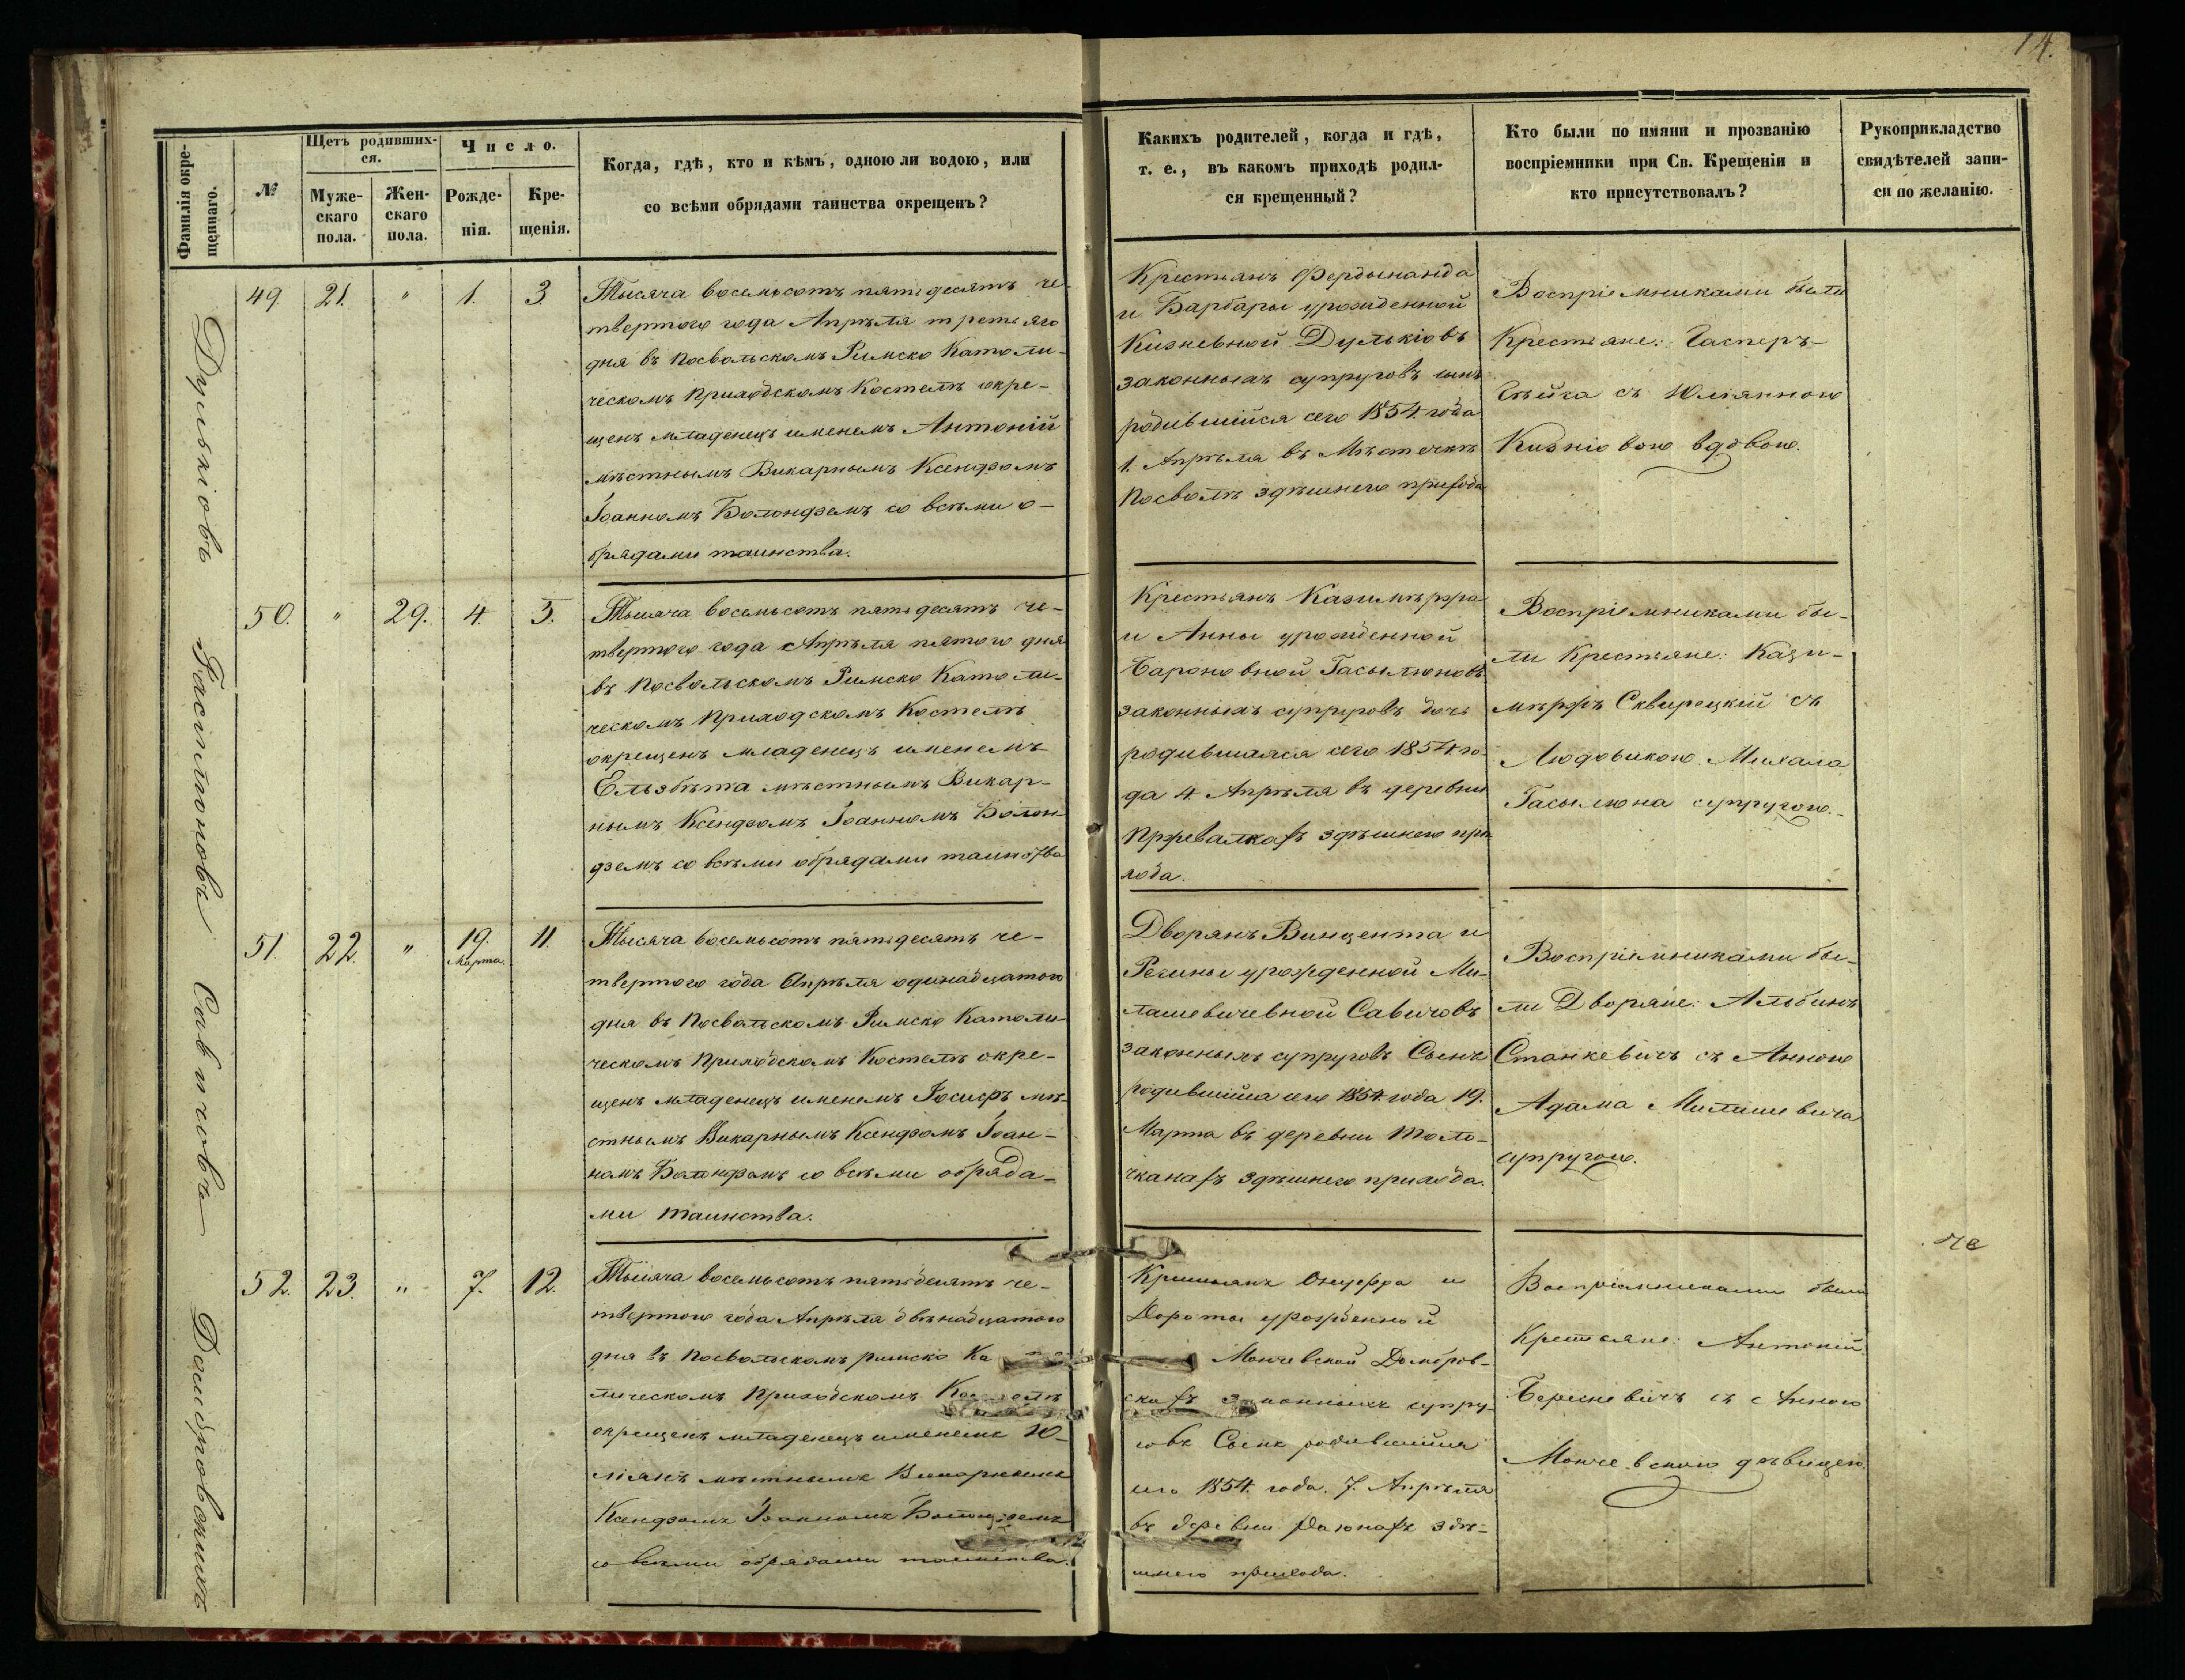 14.
Фамилія окре-
щеннаго.
№
Щетъ родивших-
ся.
Муже-
скаго
пола.
Жен-
скаго
пола.
Число.
Рожде-
нія.
Кре-
щенія.
Когда, гдѣ, кто и кѣмъ, одною ли водою, или
со всѣми обрядами таинства окрещенъ?
Какихъ родителей, когда и гдѣ,
т. е., въ какомъ приходѣ родил-
ся крещенный?
Кто были по имяни и прозванію
воспріемники при Св. Крещеніи и
кто присутствовалъ?
Рукоприкладство
свидѣтелей запи-
си по желанію.
Дулькіовъ
49
21.
"
1.
3
Тысяча восемьсотъ пятьдесятъ че-
твертого года Апрѣля третьяго
дня въ Посвольскомъ Римско Католи-
ческомъ Приходскомъ Костелѣ окре-
щенъ младенецъ именемъ Антоній
мѣстнымъ Викарнымъ Ксендзомъ
Іоанномъ Болондземъ со всѣми о-
брядами таинства.
Крестьянъ Фердынанда
и Барбары урожденной
Кизневной Дулькіовъ
законныхъ супруговъ сынъ
родившійся сего 1854 года
1. Апрѣля въ Мѣстечкѣ
Посволѣ здѣшнего прихода
Воспріемниками были
Крестьяне: Гасперъ
съ Юліянною
Кизніовою вдовою.
Гасылюновъ
50.
"
29.
4.
5.
Тысяча восемьсотъ пятьдесятъ че-
твертого года Апрѣля пятого дня
въ Посвольскомъ Римско Католи-
ческомъ Приходскомъ Костелѣ
окрещенъ младенецъ именемъ
Ельзбѣта мѣстнымъ Викар-
нымъ Ксендзомъ Іоанномъ Болон-
дземъ со всѣми обрядами таинства
Крестьянъ Казимѣржа
и Анны урожденной
Бароновной Гасылюновъ
законныхъ супруговъ дочь
родившаяся сего 1854 го-
да 4 Апрѣля въ деревни
Пржевалкахъ здѣшнего при-
хода.
Воспріемниками бы-
ли Крестьяне: Кази-
мѣржъ Сквирецкій съ
Людовикою Михала
Гасылюна супругою.
Савичовъ
51.
22.
"
19.
Марта.
11.
Тысяча восемьсотъ пятьдесятъ че-
твертого года Апрѣля одинадцатого
дня въ Посвольскомъ Римско Католи-
ческомъ Приходскомъ Костелѣ окре-
щенъ младенецъ именемъ Іосифъ мѣ-
стнымъ Викарнымъ Ксендзомъ Іоан-
номъ Болондземъ со всѣми обряда-
ми таинства.
Дворянъ Винцента и
Регины урожденной Ми-
лашевичевной Савичовъ
законныхъ супруговъ Сынъ
родившійся сего 1854 года 19.
Марта въ деревни Толо-
чканахъ здѣшнего прихода.
Воспріемниками бы-
ли Дворяне: Альбинъ
Станкевичъ съ Анною
Адама Милашевича
супругою.
Домбровскихъ
52.
23.
"
7.
12.
Тысяча восемьсотъ пятьдесятъ че-
твертого года Апрѣля двѣнадцатого
дня въ Посвольскомъ римско Ка
лическомъ Приходскомъ Костелѣ
окрещенъ младенецъ именемъ Ю-
ліянъ мѣстнымъ Викарнымъ
Ксендзомъ Іоанномъ Болондземъ
со всѣми обрядами таинства.
Крестьянъ Онуфра и
Дороты урожденной
Мончевской Домбров-
скихъ законныхъ супру-
говъ Сынъ родившійся
сего 1854. года. 7. Апрѣля
въ деревни здѣ-
шнего прихода.
Воспріемниками были
Крестьяне: Антоній
Бересневичъ съ Анною
Мончевскою дѣвицею.